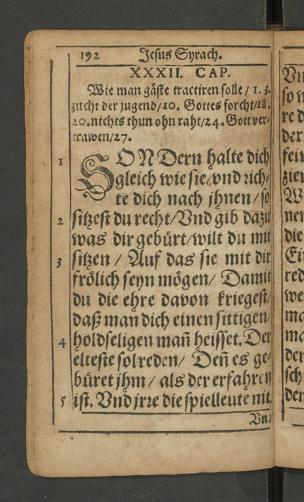 192 Jesus Syrach.
XXXII. CAP.
Wie man gäste tractiren solle / 1. 3.
zucht der jugend/10. Gottes forcht/18.
20. nichts thun ohn raht/24. Gott ver-
trawen/27.
1 SONDern halte dich
gleich wie sie/vnd rich-
te dich nach jhnen / so
2 sitzest du recht/Vnd gib dazu
was dir gebürt/wilt du mit
3 sitzen / Auff das sie mit dir
frölich seyn mögen / Damit
du die ehre davon kriegest/
daß man dich einen sittigen/
4 holdseligen mañ heisset. Der
elteste sol reden / Deñ es ge-
büret jhm / als der erfahren
5 ist. Vnd jrre die spielleute nit.
Vn?
Vn
so
re d
der
fei
zie
W
nen
die
Ei
red
we
ma
ma
der
sch
den